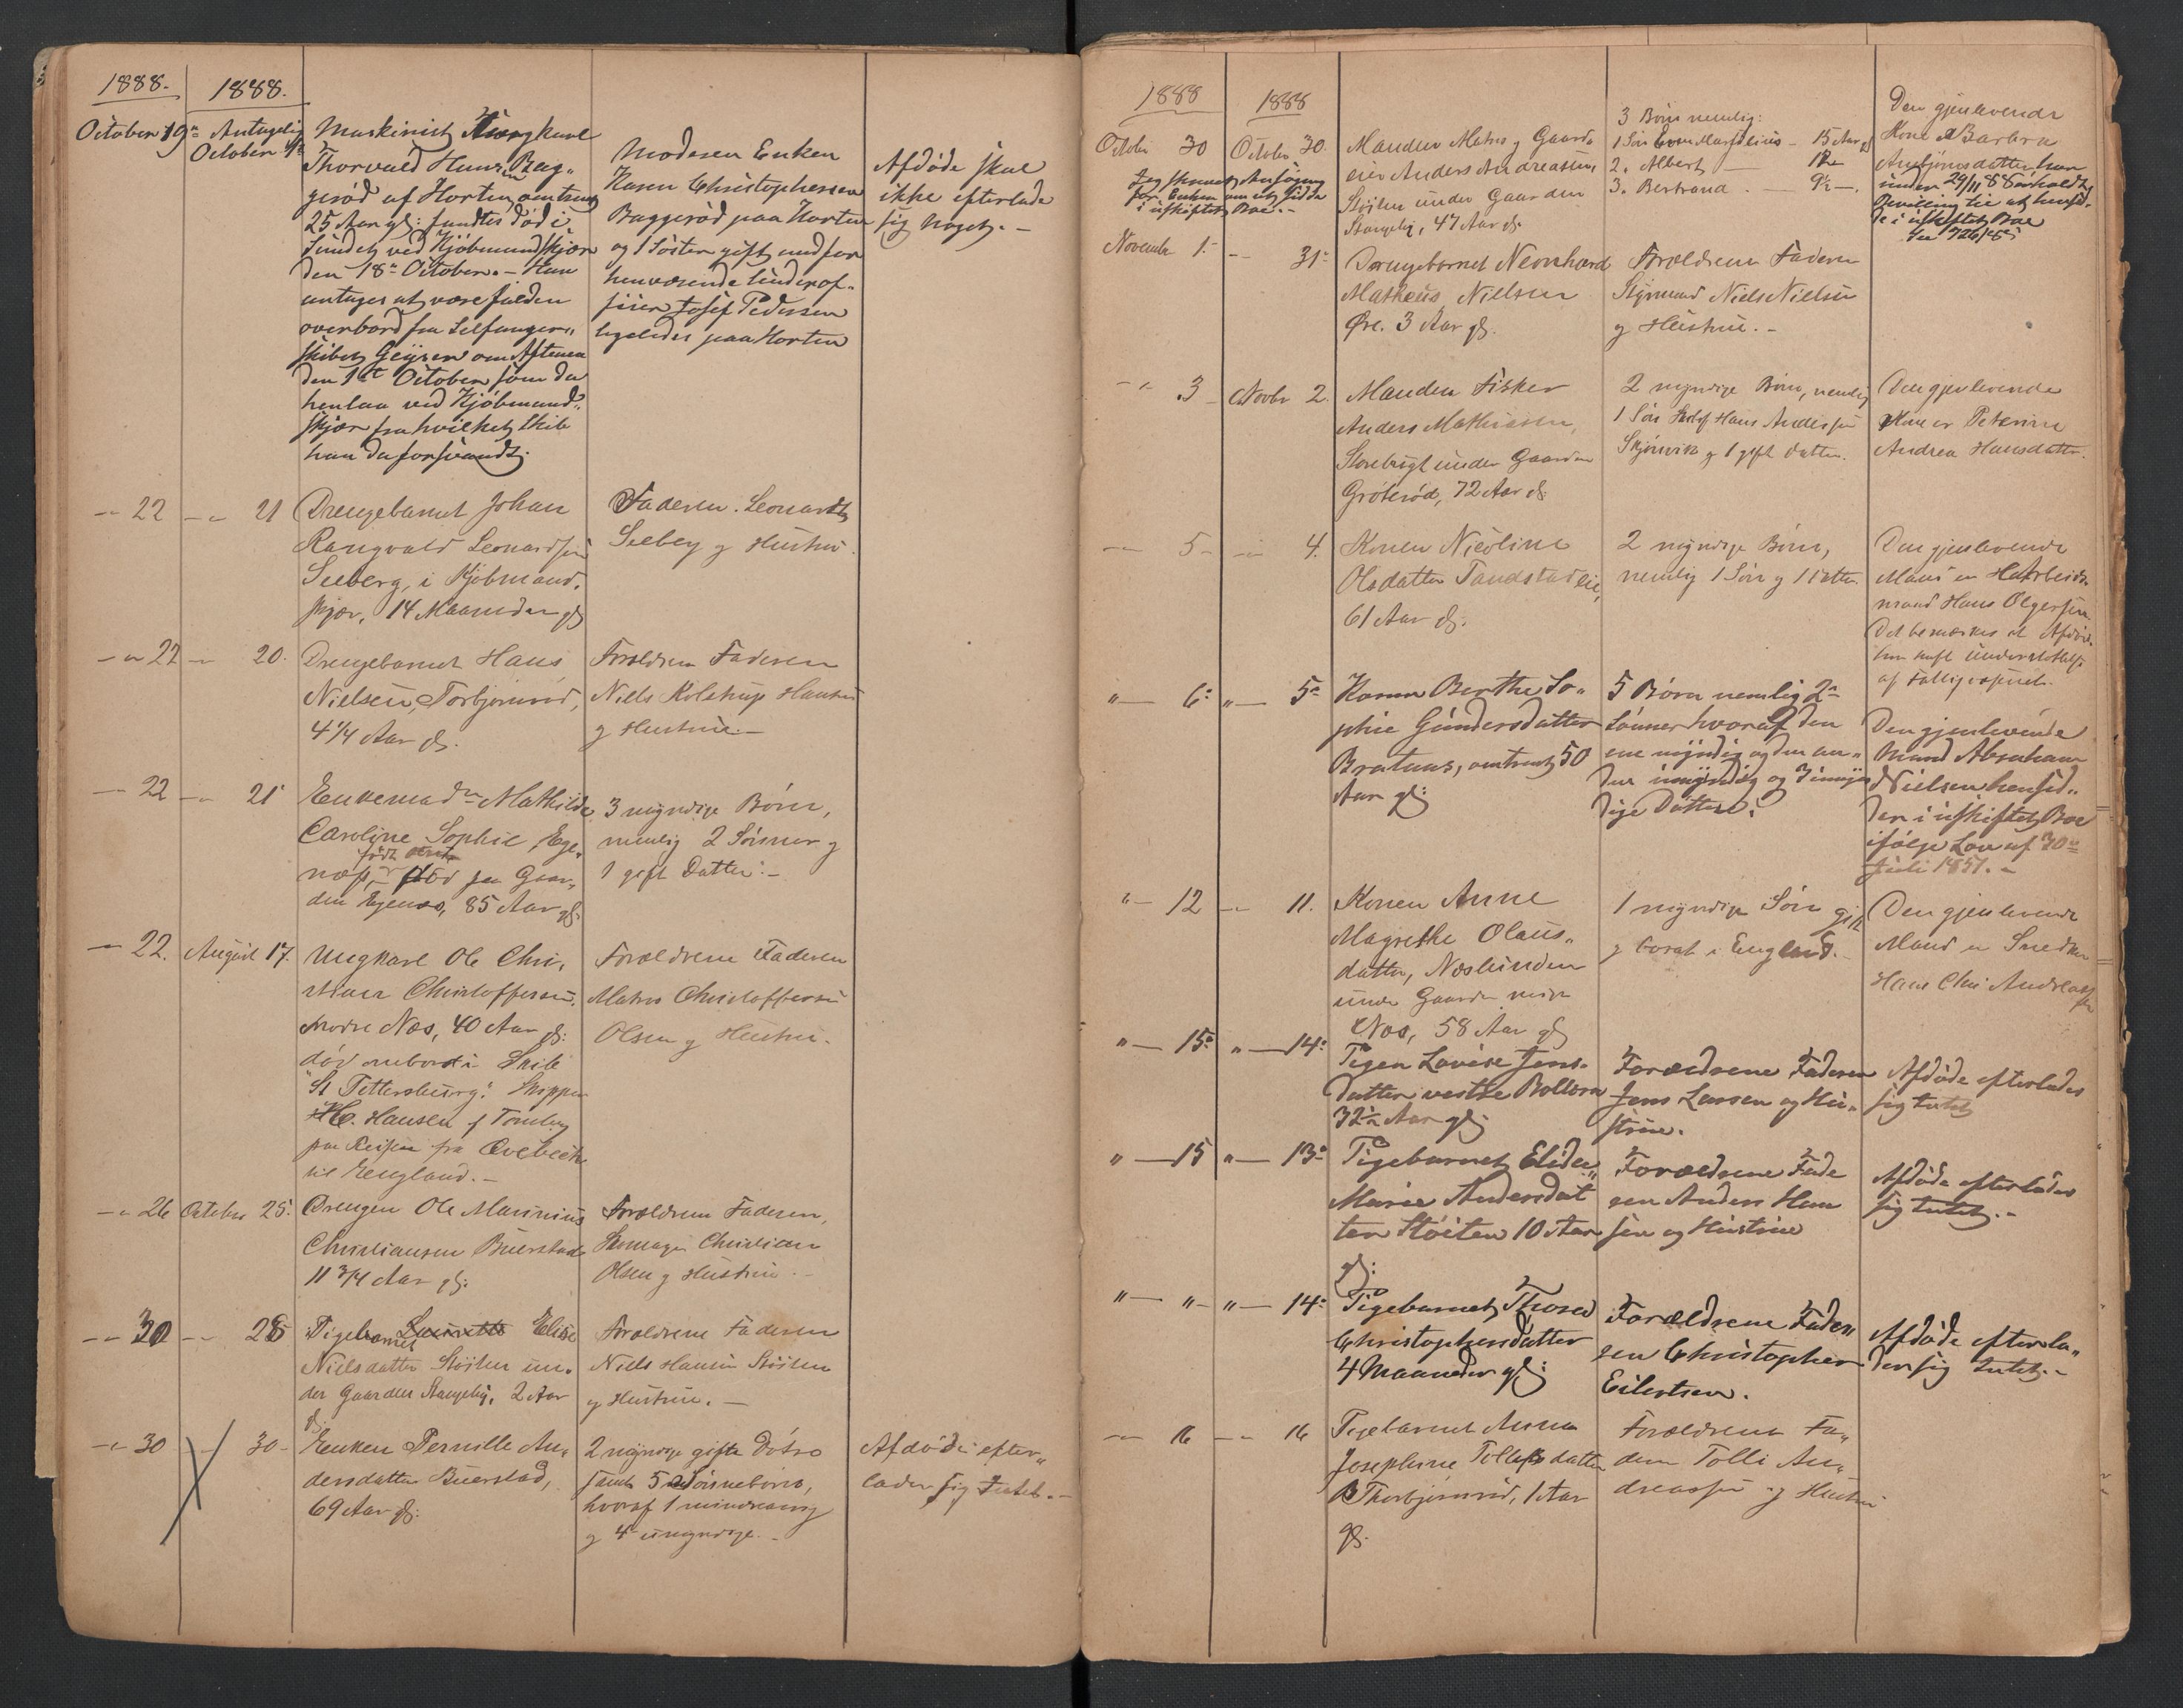 1888.
1888.
October 19
Antagelig
October
Maskinist Ungkarl
Thorvald Hansen Bag„
gerød af Horten omtrent
25 Aar gl: fundtes død i
Sundet ved Kjøbmandskjær
den 18 October. - Han
antages at være falden
overbord fra Selfanger„
skibet Geysir om Aftenen
den 1 October som da
henlaa ved Kjøbmand„
skjær fra hvilket Skib
han da forsvandt.
Moderen Enken
Karen Christophersen
Baggerød paa Horten
og 1 Søster gift med for
henværende Underof„
ficer Josef Pedersen
ligeledes paa Horten
Afdøde skal
ikke efterlade
sig noget. -
22
21
Drengebarnet Johan
Rangvald Leonardsen
Seeberg, i Kjøbmand,
skjær, 14 Maaneder gl
Faderen. Leonardt
Seeberg og Hustru.
22
20.
Drengebarnet Hans
Nielsen, Torbjørnrød,
4 1/4 Aar gl.
Forældrene Faderen
Niels Kolstrup Hansen
og Hustrue. -
22
21
Enkemadm Mathilde
Caroline Sophie, Ege,
født
næs, - død paa Gaar,
den Egenæs, 85 Aar gl:
3 myndige Børn,
nemlig 2 Sønner og
1 gift Datter. -
22.
August 17.
Ungkarl Ole Chri,
stian Christoffersen.
Nordre Næs, 40 Aar gl:
død ombord i Skib
"St Pettersburg". Skipper
H C. Hansen af Tønsberg
paa Reisen fra
til England. -
Forældrene Faderen
Matros Christoffersen
Olsen og Hustru.
26
October 25.
Drengen Ole Marinius
Christiansen Buerstad
11 3/4 Aar gl:
Forældrene Faderen,
Skomager Christian
Olsen og Hustrue. -
30
28
Pigebarnet Elise
Nielsdatter Støiten un,
der Gaarden Stangeby, 2 Aar
gl:
Forældrene Faderen
Niels Hansen Støiten
og Hustrue. -
30
30-
Enken Pernille An,
dersdatter Buerstad,
69 Aar gl:
2 myndige gifte Døtre
samt 5 Sønnebørn,
hvoraf 1 mindreaarig
og 4 umyndige. -
Afdøde efter„
lader sig Intet. -
1888
1888
Octobr 30
October 30
Jeg skrevet Ansøgning
for Enken om at sidde
i uskiftet Boe. -
Manden Matros og Gaard,
eier Anders Andreassen,
Støiten under Gaarden
Stangeby, 47 Aar gl.
3 Børn nemlig:
1 Søn Even Marsilius - 15 Aar gl
2. Albert - 12
3. Bertrand. - 9 1/2 -.
Den gjenlevende
Kone er Barbra
har
under 29/11 88 erholdt
Bevilling til at hensid„
de i uskiftet Boe
November 1.
31
Drengebarnet Neonhard
Matheus Nielsen
Øre. 3 Aar gl.
Forældrene Faderen
Styrmand Niels Nielsen
og Hustrue. -
3
Novbr 2.
Manden Fisker
Anders Mathiasen,
Storebrygt under Gaarden
Grøterød, 72 Aar gl.
2 myndige Børn, nemlig
1 Søn Hans Andersen
Skjærvik og 1 gift Datter.
Den gjenlevende
Kone er Peterine
Andrea Hansdatter.
5
4.
Konen Nicoline
Olsdatter Tandstadeie,
61 Aar gl.
2 myndige Børn,
nemlig 1 Søn og 1 Datter.
Den gjenlevende
Mand er Arbeids„
mand Hans Olgersen
Det bemærkes at Afdøde
har havt Understøttelse
af Fattigvæsenet.
6
5
Konen Berthe So„
phie Gundersdatter
Bratnes, omtrent 50
Aar gl:
5 Børn nemlig 2
Sønner hvoraf den
ene myndig og den an„
den umyndig og 3 umyn
dige Døttre.
Den gjenlevende
Mand Abraham
Nielsen hensid„
der i uskiftet Boe
ifølge Lov af 30
Juli 1851. -
12
11.
Konen Anne
Magrethe Olaus„
datter, Næslunden
under Gaarden
Næs, 58 Aar gl
1 myndig Søn gift
og bosat i England. -
Den gjenlevende
Mand er Snedker
Hans Chr Andreas
sen
15
14
Pigen Lovise Jens„
datter vestre Bollern
32 1/2 Aar gl:
Forældrene Faderen
Jens Larsen og Hu„
strue.
Afdøde efterlader
sig Intet
15
13
Pigebarnet Elida
Marie Andersdat
ter Støiten 10 Aar
gl:
Forældrene Fade
ren Anders Han
sen og Hustrue
Afdøde efterlader
sig Intet. -
14
Pigebarnet Thora
Christophersdatter
4 Maaneder gl:
Forældrene Fade„
ren Christopher
Eilertsen.
Afdøde efterla„
der sig Intet. -
16
16
Pigebarnet Anna
Josephine Tollefsdatter
Thorbjørnrød, 1 Aar
gl.
Forældrene Fa„
deren Tolli An„
dreassen og Hustru